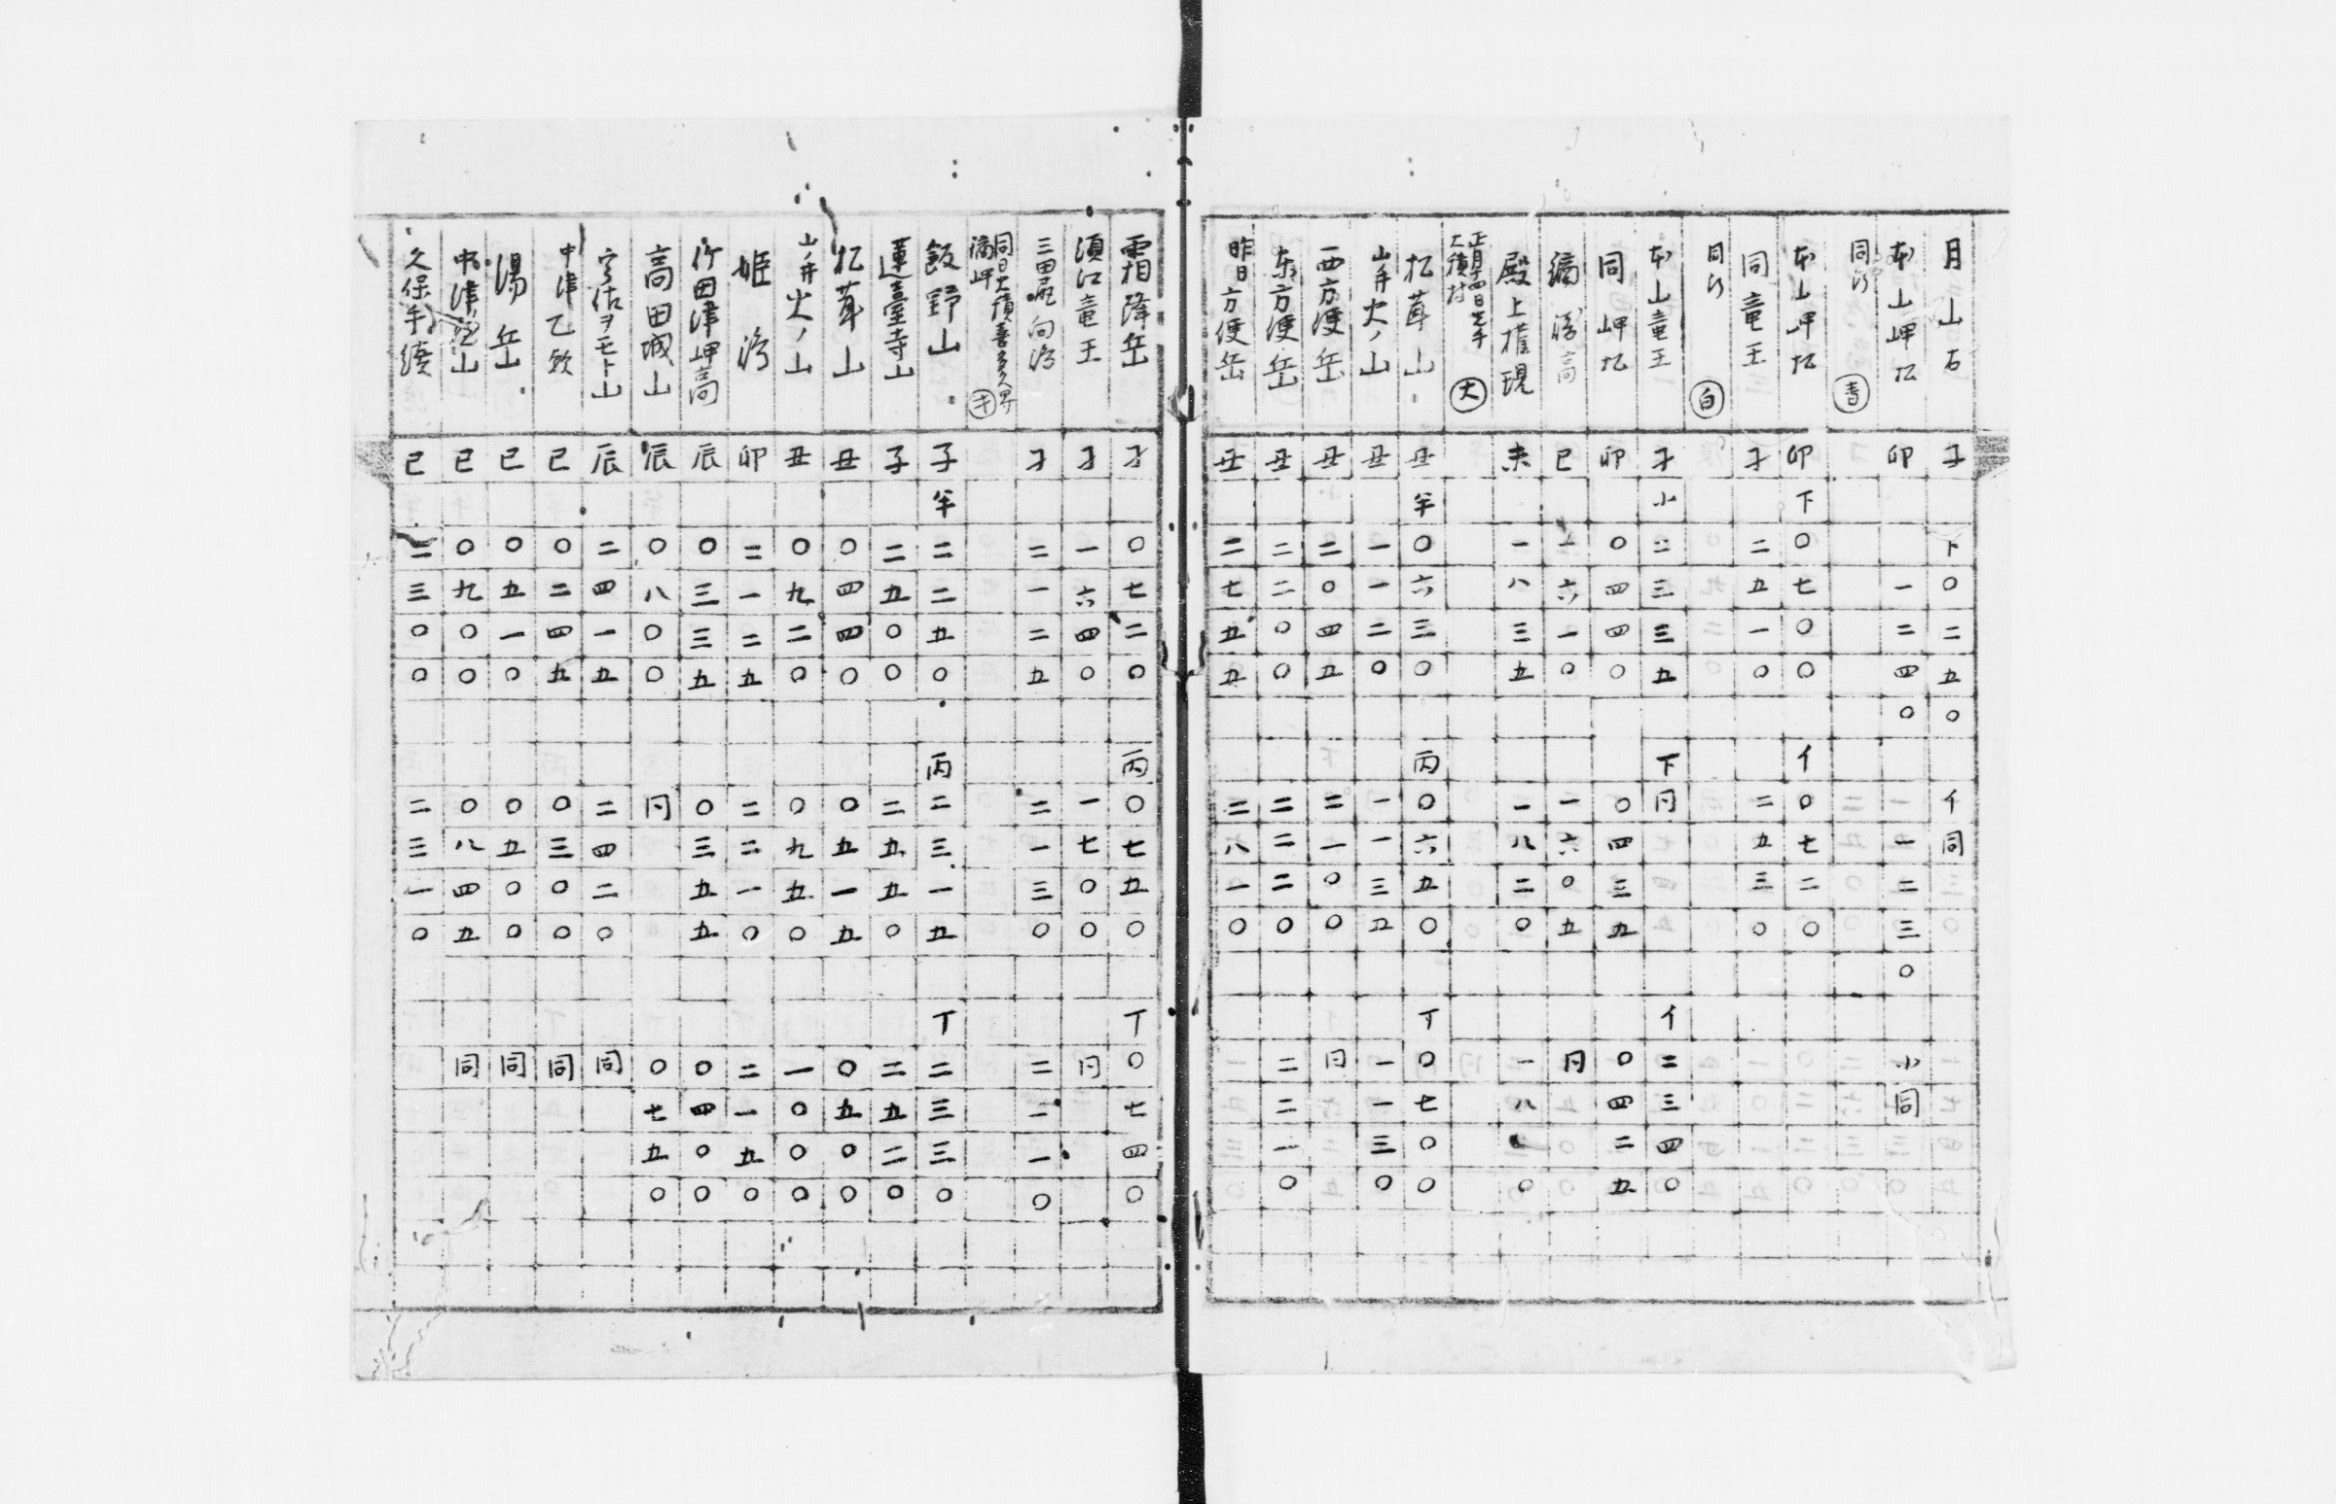 月山石 子 下〇二五〇 イ同
本山岬松 卯 一二四〇 一一二三〇 小同
同所 善
本山岬松 卯 下〇七〇〇 イ〇七二〇
同竜王 子 二五一〇 二五三〇
同所 白
本山竜王 子 小二三三五 下同 イ二三四〇
同岬松 卯 〇四四〇 〇四三五 〇四二五
巳 一六一〇 一六〇五 同
殿上權現 未 一八三五 一八二〇
正月十四日 大
松茸山 丑 半〇六三〇 丙〇六五〇 丁〇七〇〇
山井火ノ山 丑 一一二〇 一一三五 一一三〇
西方便岳 丑 二〇四五 二一〇〇 同
东方便岳 丑 二二〇〇 二二二〇 二二一〇
昨日方便岳 丑 二七五五 二八一〇
霜降岳 子 〇七二〇 丙〇七五〇 丁〇七四〇
須江竜王 子 一六四〇 一七〇〇 同
三田尻向 子 二一二五 二一三〇 二一一〇
同日
飯野山 子 半二二五〇 丙二三一五 丁二三三〇
蓮臺寺山 子 二五〇〇 二五五〇 二五二〇
松茸山 丑 〇四四〇 〇五一五 〇五〇〇
山ノ井火ノ山 丑 〇九二〇 〇九五〇 一〇〇〇
姫 卯 二一二五 二二一〇 二一五〇
竹田津岬高 辰 〇三三五 〇三五五 〇四〇〇
高田城山 辰 〇八〇〇 同 〇七五〇
宇佐ヲモト山 辰 二四一五 二四二〇 同
中津乙 巳 〇二四五 〇三〇〇 同
湯岳 巳 〇五一〇 〇五〇〇 同
中津山 巳 〇九〇〇 〇八四五 同
久保手續 巳 二三〇〇 二三一〇